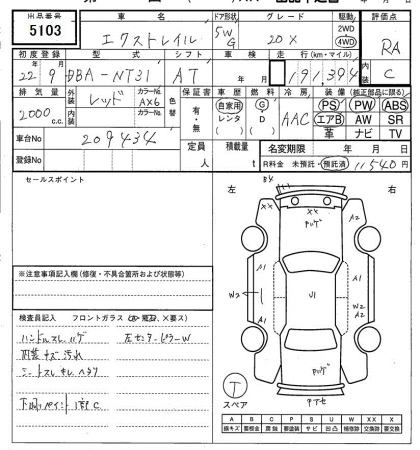 出品番号 車名 ドア形状 グレード 駆動 評価点
5103 エクストレイル 5W G 20X 2WD 4WD RA
初度登録 型式 シフト 車検 走行(km・マイル) 内装
22 9 DBA-NT31 AT 年 月 191,394 C
排気量 外装 カラーNo. 色替 保証書 車歴 燃料 冷房 装備(純正部品に限る)
2000 c.c. レッド AX6 有・無 自家用 レンタ G D AAC PS PW ABS
内装 カラーNo. エアB AW SR
革 ナビ TV
車台No 209434 定員 人 積載量 t 名変期限 年 月 日
登録No R料金 未預託・預託済 11540円
セールスポイント
左 右
※注意事項記入欄(修復・不具合箇所および状態等)
検査員記入 フロントガラス
ハンドルスレ ハゲ 左センターピラーW
内装キズ汚れ
シートスレ キレ ヘタリ
XX XX
A1 A1
W2 U1 W2
A2
A1 A2
T
スペア
A B C P S U W X XX
線キズ 要板金 腐蝕 要塗装 サビ 凹凸 補修跡 交換跡 要交換